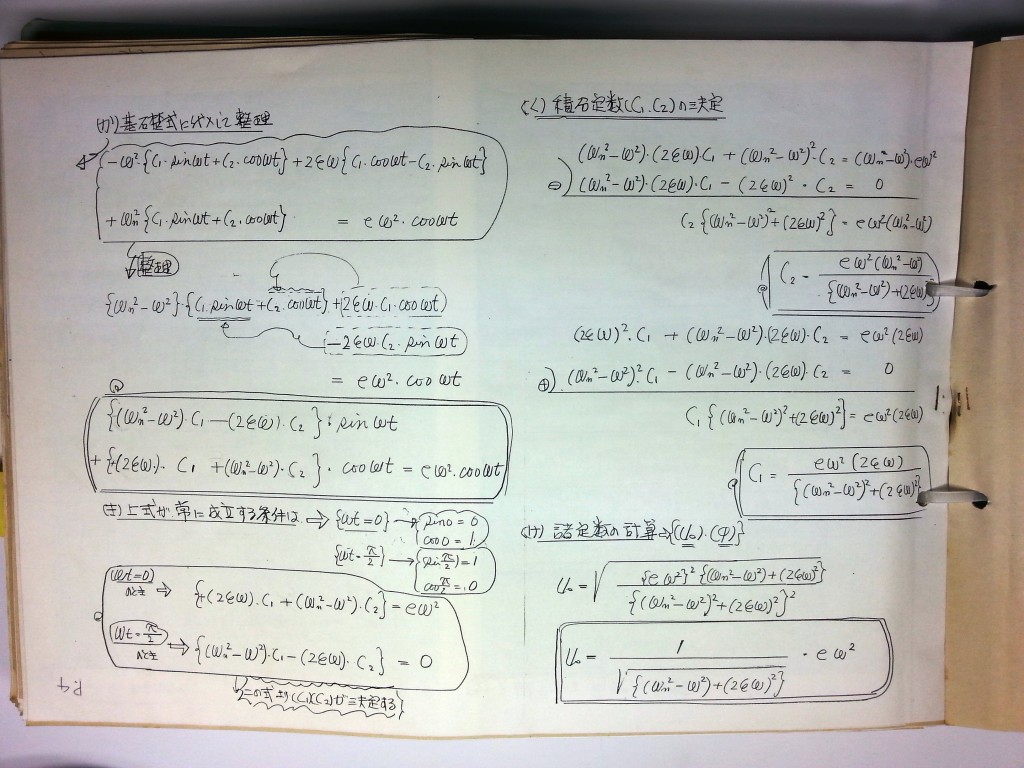 (カ) 基礎式に代入して整理
-ω²{C₁·sinωt+C₂·cosωt}+2εω{C₁·cosωt-C₂·sinωt}
+ωn²{C₁·sinωt+C₂·cosωt} = eω²·cosωt
整理
{ωn²-ω²}·{C₁·sinωt+C₂·cosωt}+2εω·C₁·cosωt
-2εω·C₂·sinωt
= eω²·cosωt
{(ωn²-ω²)·C₁-(2εω)·C₂}·sinωt
+{+(2εω)·C₁+(ωn²-ω²)·C₂}·cosωt=eω²·cosωt
(キ) 上式が常に成立する条件は ⇒ {ωt=0} → sin0=0
cos0=1
{ωt=π/2} → {sin π/2=1
cos π/2=0
(ωt=0)のとき ⇒ {+(2εω)·C₁+(ωn²-ω²)·C₂}=eω²
(ωt=π/2)のとき ⇒ {(ωn²-ω²)·C₁-(2εω)·C₂} = 0
この式より(C₁)(C₂)が決定する
P.4
(ク) 積分定数(C₁.C₂)の決定
(ωn²-ω²)·(2εω)·C₁+(ωn²-ω²)²·C₂=(ωn²-ω²)·eω²
⊖) (ωn²-ω²)·(2εω)·C₁-(2εω)²·C₂ = 0
C₂{(ωn²-ω²)²+(2εω)²}=eω²(ωn²-ω²)
C₂ = eω²(ωn²-ω²) / {(ωn²-ω²)+(2εω)²}
(2εω)²·C₁ + (ωn²-ω²)·(2εω)·C₂ = eω²(2εω)
⊕) (ωn²-ω²)²·C₁ - (ωn²-ω²)·(2εω)·C₂ = 0
C₁{(ωn²-ω²)²+(2εω)²}=eω²(2εω)
C₁ = eω²(2εω) / {(ωn²-ω²)²+(2εω)²}
(ケ) 諸定数の計算⇒{(U₀)·(φ)}
U₀=√{eω²}²{(ωn²-ω²)+(2εω)²} / {(ωn²-ω²)²+(2εω)²}²
U₀= 1 / √{(ωn²-ω²)+(2εω)²} · eω²